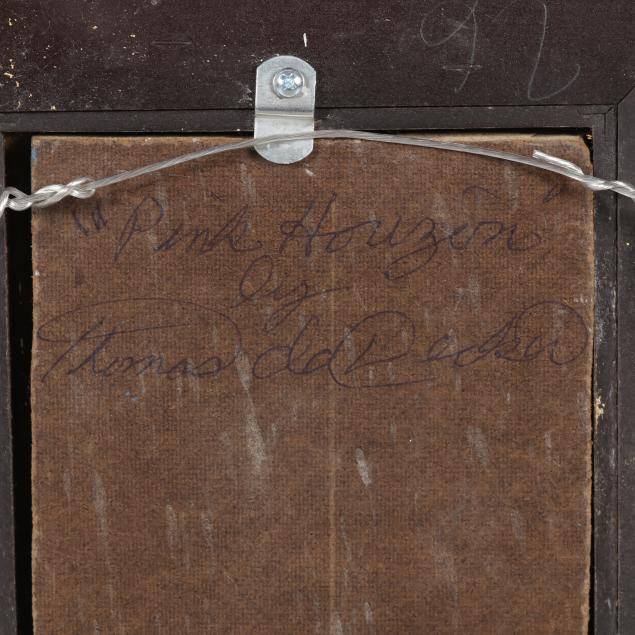 "Pink Horizon"
by
Thomas deDecker